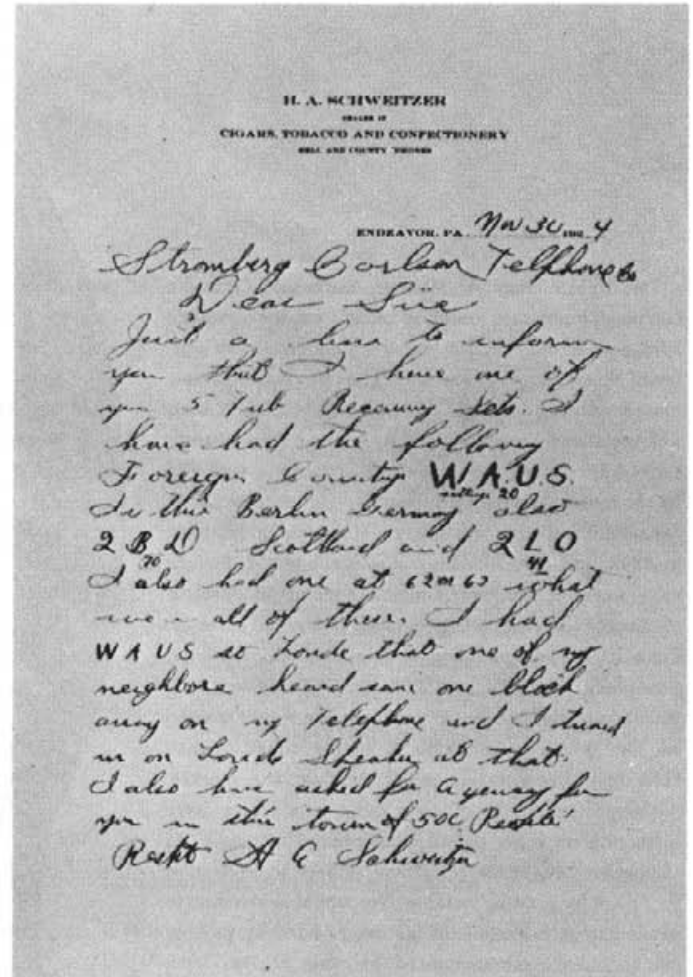 H. A. SCHWEITZER
DEALER IN
CIGARS, TOBACCO AND CONFECTIONERY
BELL AND COUNTY 'PHONES
ENDEAVOR, PA. Nov 30 192 4
Stromberg Carlson Telphone Co
Dear Sir
Just a line to inform
you that I have one of
your 5 Tub Recieving Sets. I
have had the following
Foreign Countys W.A.U.S.
settings 20
Is this Berlin Germany also
2 B D Scottland and 2 L O
70 41
I also had one at 62 or 63 what
all of these. I had
W A U S so Loude that one of my
neighbors heard same one block
away on my Telephone and I tuned
in on Loude Speaker at that.
I also have asked for Agensy for
you in this town of 500
Reskt H A Schweitzer